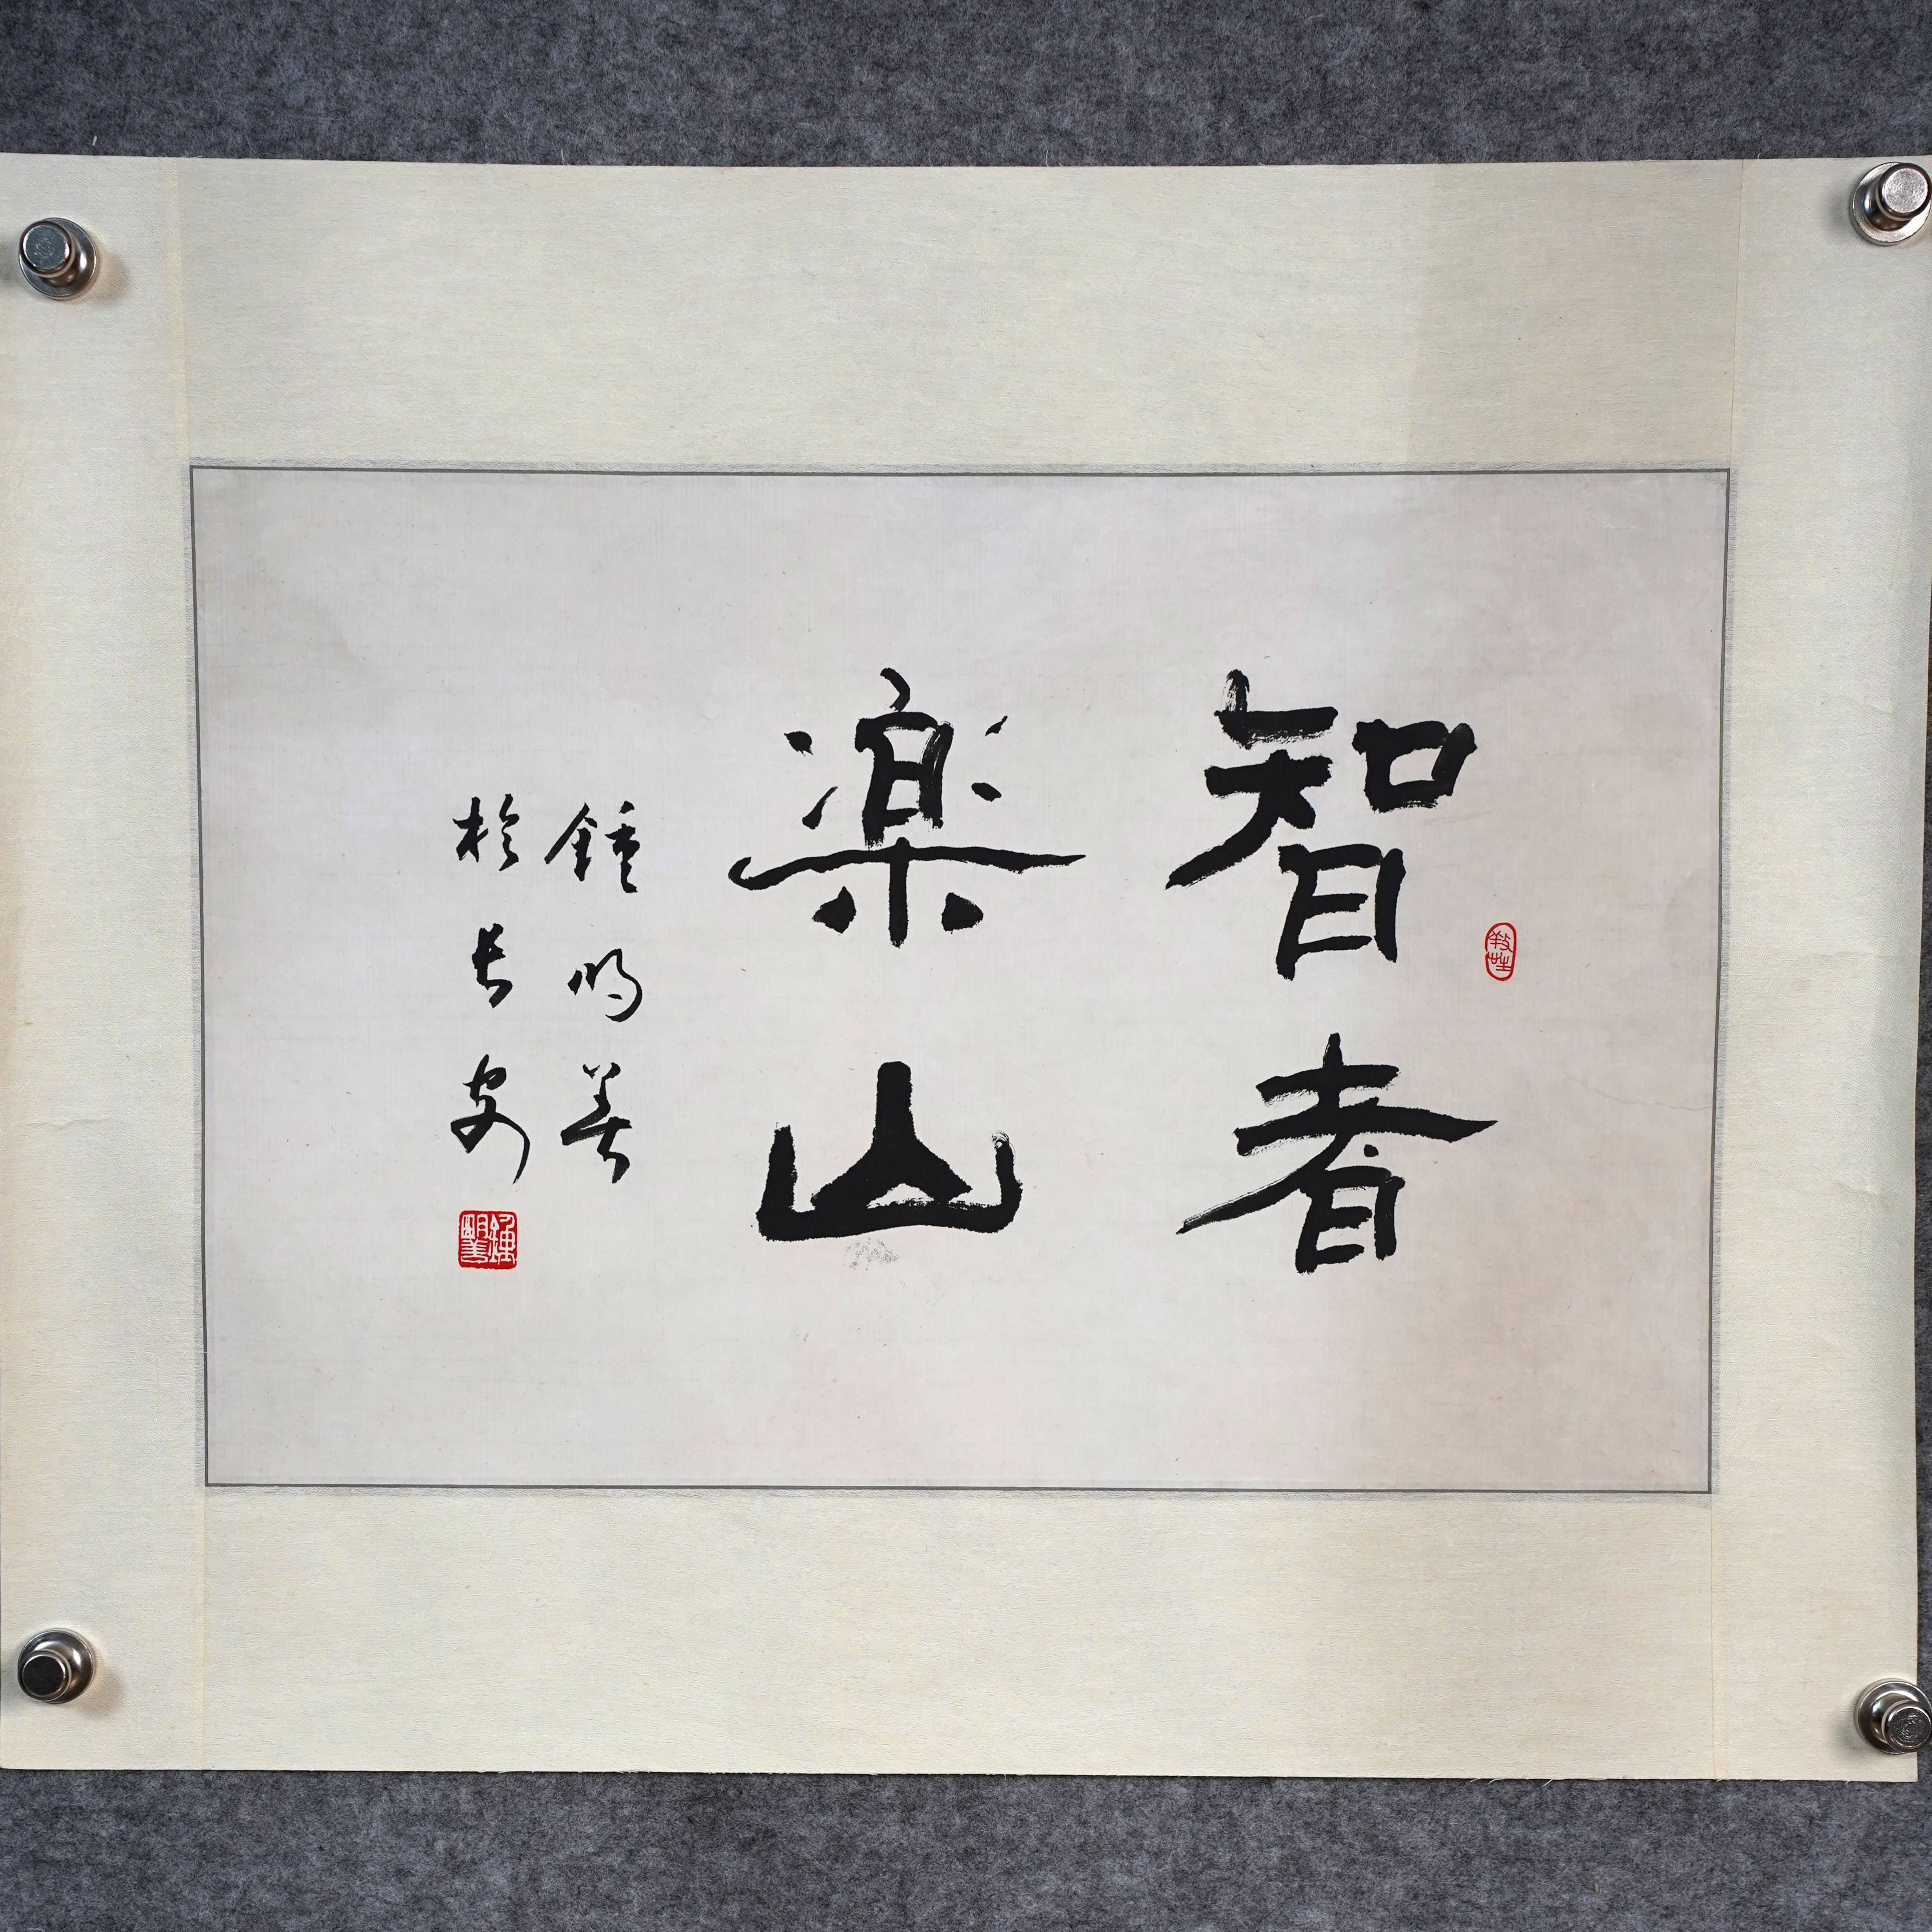 智者
楽山
鍾明善
於长安
鍾明善